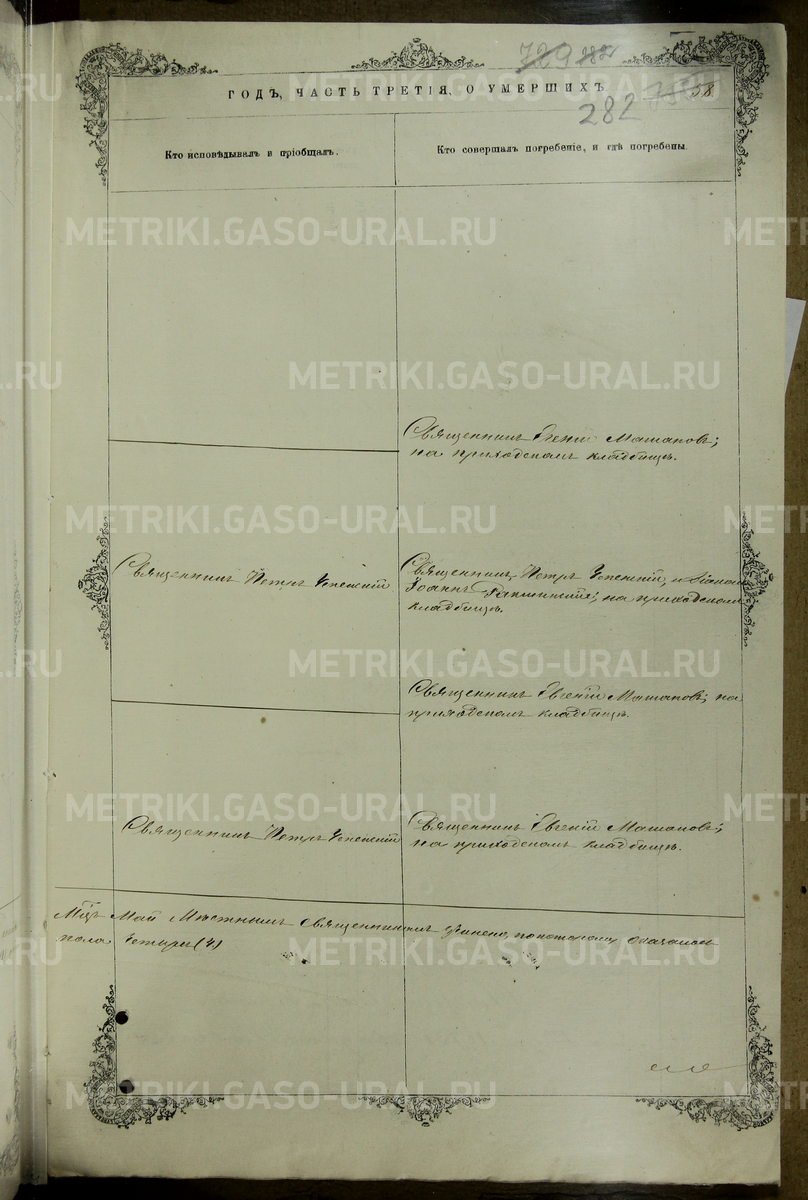 729 282
ГОДЪ, ЧАСТЬ ТРЕТІЯ, О УМЕРШИХЪ
58
282
Кто исповѣдывалъ и пріобщалъ.
Кто совершалъ погребеніе, и гдѣ погребены.
Священникъ Евгеній Машановъ;
на приходскомъ кладбищѣ.
Священникъ Петръ Успенскій
Священникъ Петръ Успенскій, и Діаконъ
Іоаннъ на приходскомъ
кладбищѣ.
Священникъ Евгеній Машановъ; на
приходскомъ кладбищѣ.
Священникъ Петръ Успенскій
Священникъ Евгеній Машановъ;
на приходскомъ кладбищѣ.
Мцъ Май Мѣстнымъ священникомъ по которому оказалось
пола четыре (4)
METRIKI.GASO-URAL.RU